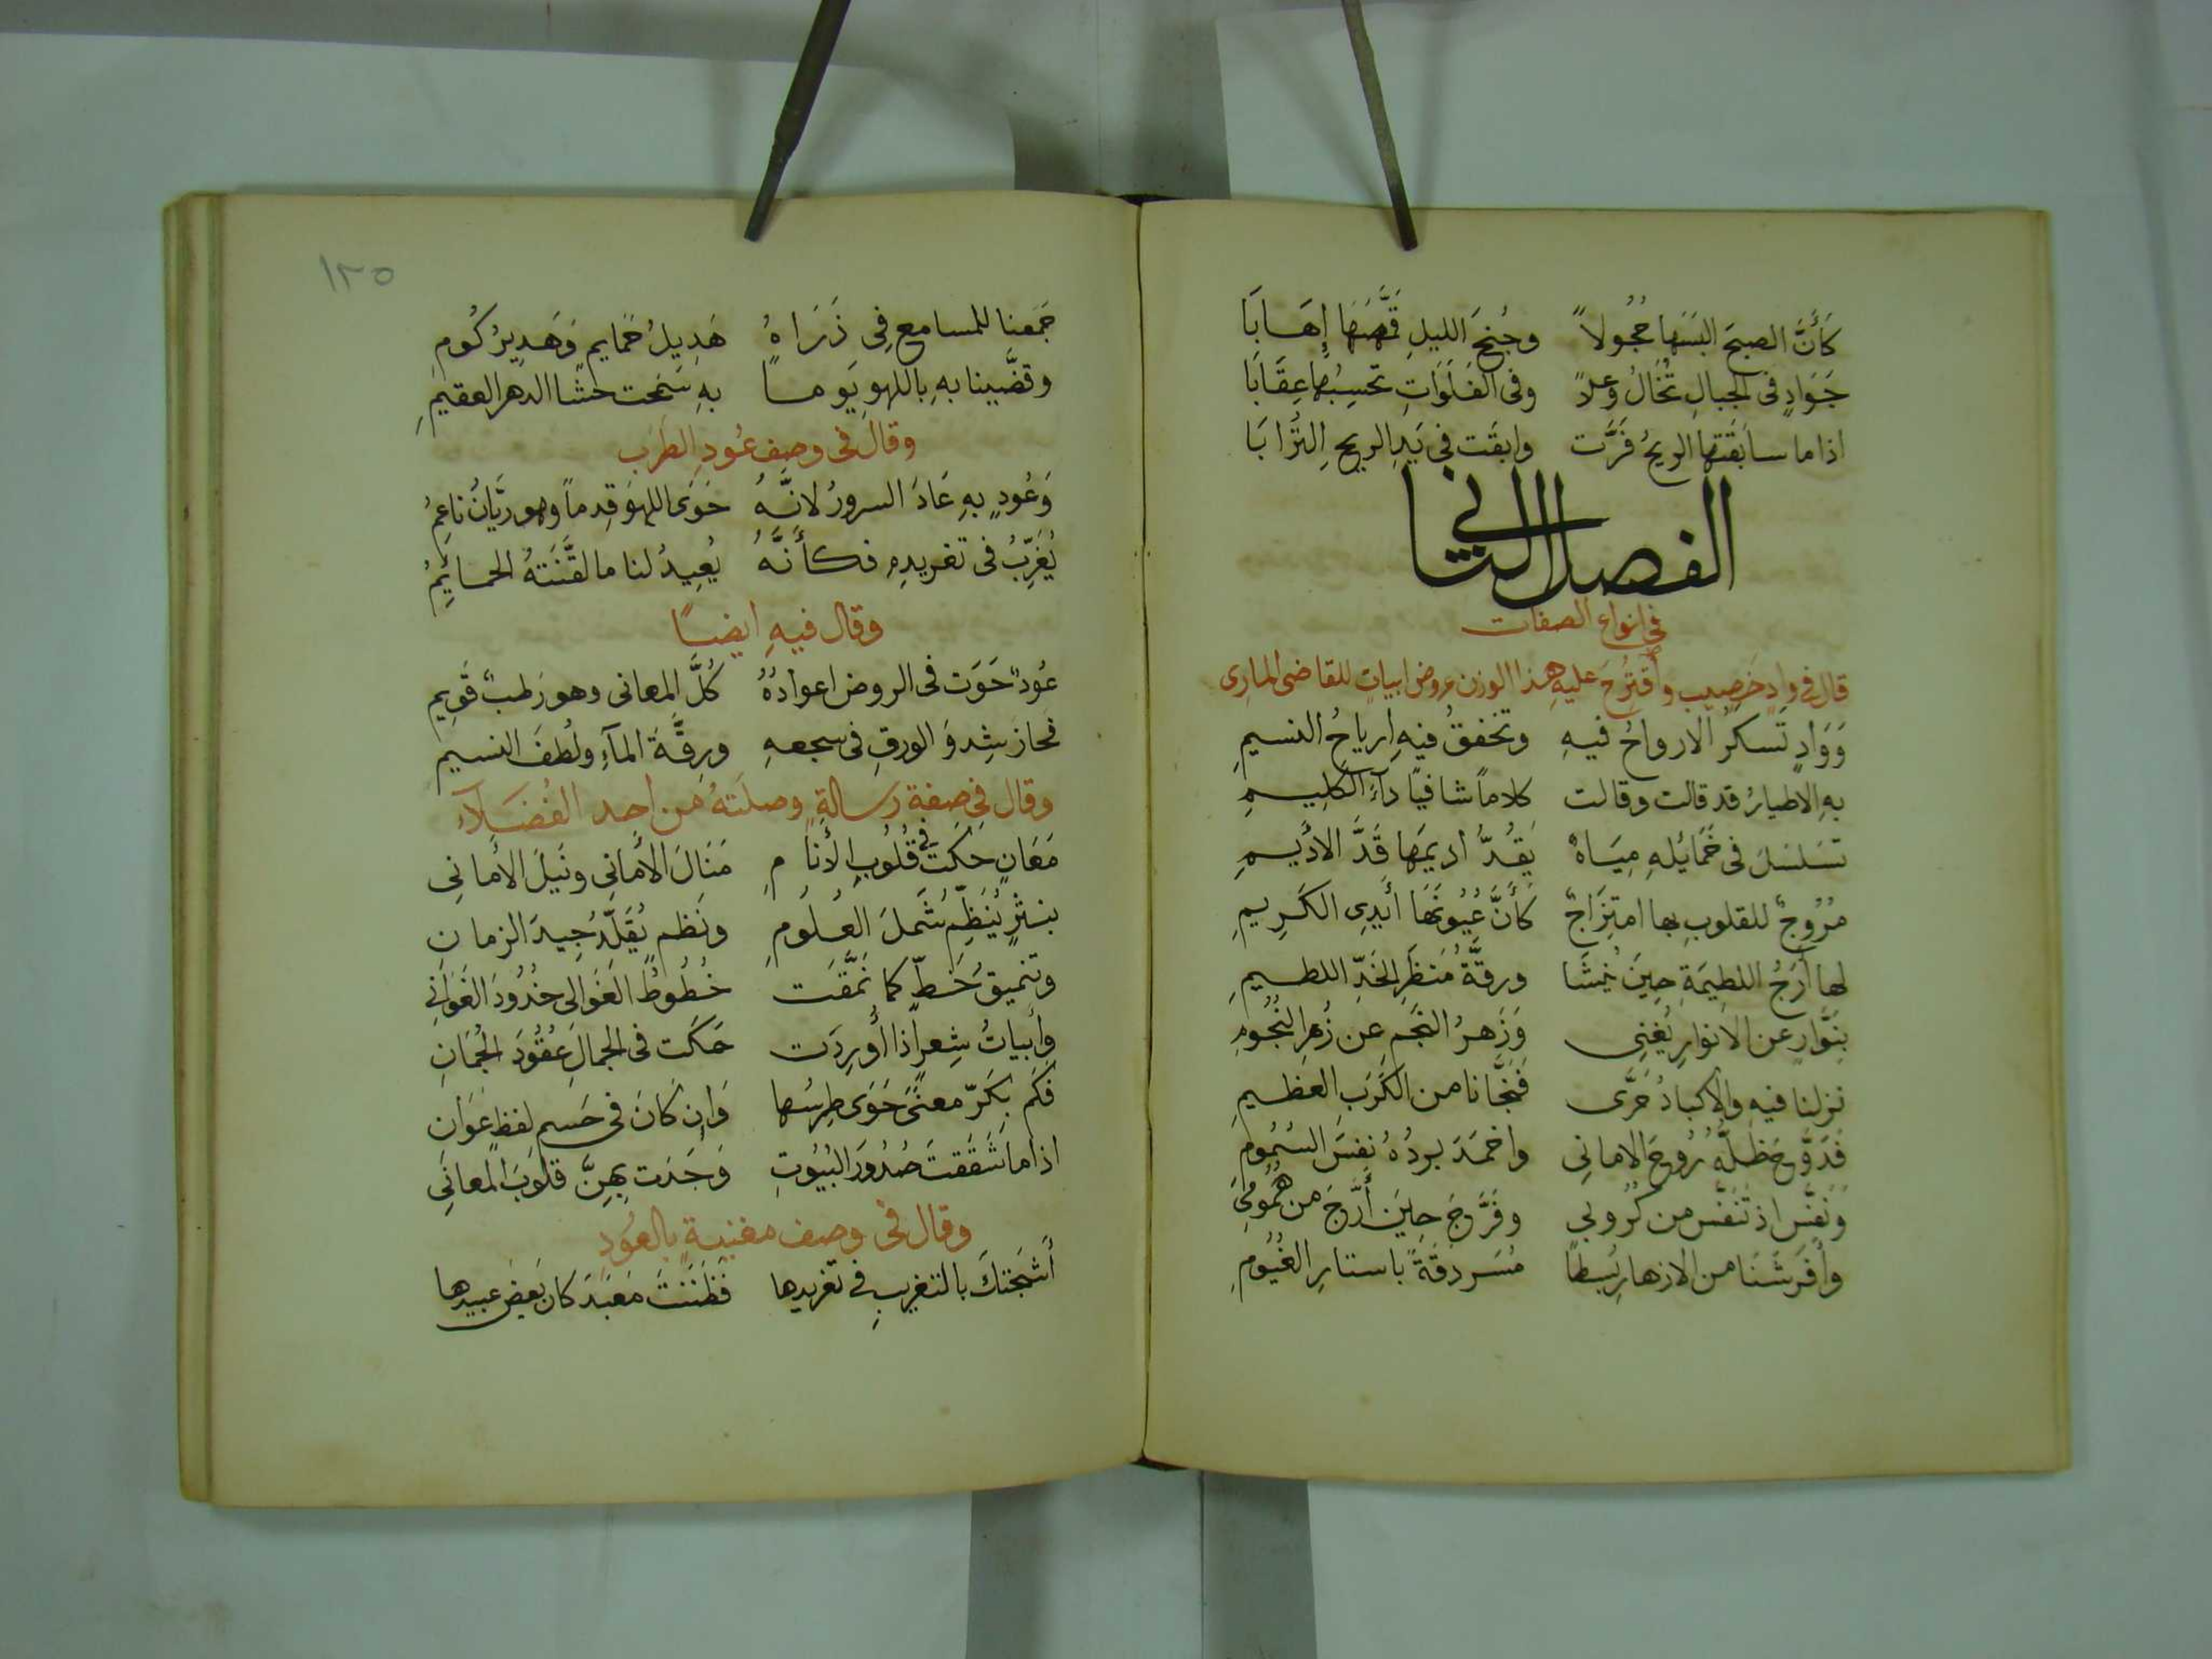 كَأَنَّ الصبحَ البَسَهَا حُجُولاً وجُنحَ الليلِ قَمَّصَهَا إِهَابَا
جَوَادٍ فى الجبالِ تُخَالُ وَعلاً وفى الفَلَوَاتِ تحسِبُها عِقَابَا
اذا ما سابَقَتها الريحُ فَرَّت وابقَت فى يَدِ الريحِ التُرَابَا
الفصل الثانى
فى انواع الصفات
قال فى وادٍ خَصِيب وأقتُرِحَ عليهِ هذا الوزن عروض ابياتٍ للقاضى المازِى
وَوَادٍ تَسكرُ الارواحُ فيهِ وتخفقُ فيهِ ارياحُ النسيمِ
بهِ الاطيارُ قد قالت وقالت كلاماً شافياً دآءَ الكليمِ
تسَلسَلَ فى خَمَائِلهِ مِيَاهٌ يَقُدُّ أديمَهَا قَدَّ الاَديمِ
مُرُوجٌ للقلوبِ بها امتِزَاجٌ كَأَنَّ عُيُونَهَا أَيدِى الكَرِيمِ
لها أَرَجُ اللطِيمَةِ حِينَ يُمشَا ورِقَّةُ مَنظَرِ الخَدِّ اللطيمِ
بِنَوَّارٍ عن الانوارِ يُغنِى وَزَهرُ النجمِ عن زُهرِ النُجُومِ
نزلنا فيهِ والاكبادُ حَرَّى فَنجَّانا من الكَرَبِ العظيمِ
فَدَوَّحَ ظِلُّهُ رُوحَ الامانِى واخمَدَ بردُهُ نفسَ السَمُومِ
ونَفَّسَ اذ تَنَفَّسَ من كُرُوبِي وفَرَّجَ حِينَ أَرَّجَ من هُمُومِي
وأَفرَشَنَا من الازهارِ بُسطاً مُسَردَقَةً باستارِ الغُيُومِ
١٢٥
جَمَعنا للمسامعِ فِى ذَرَاهُ هَدِيلُ حَمايمٍ وَهَدِيرُ كُومِ
وقضَّينا بهِ باللهوِ يَوماً بهِ سَمَحت حشَا الدهر العقيمِ
وقال فى وصف عُودِ الطرب
وَعُودٍ بهِ عَادَ السرورُ لانَّهُ حَوَى اللهوَ قِدماً وهو رَيَّانُ ناعِمُ
يُغَرِّبُ فى تغريدِهِ فكأَنَّهُ يُعِيدُ لنا ما لقَّنَتهُ الحمائِمُ
وقال فيهِ ايضاً
عُودٌ حَوَت فى الروض اعوادُهُ كُلَّ المعانى وهو رَطبٌ قَوِيم
فَحازَ شِدوَ الورقِ فى سجعهِ ورِقَّةَ المآءِ ولُطفَ النسيم
وقال فى صِفة رسالةٍ وصلَتهُ من أحد الفُضَلآءِ
مَعَانٍ حَكَت فى قُلُوبِ الأَنامِ مَنَالَ الأَمانِى ونَيلَ الأَمانِي
بنثرٍ يُنَظِّمُ شَملَ العُلُومِ ونَظمٍ يُقَلِّدُ جِيدَ الزمانِ
وتنميقُ خَطٍّ كما نَمَّقَت خُطُوطُ الغَوَالى خدُودَ الغَوَانِي
وأَبياتُ شِعرٍ اذا أُورِدَت حَكَت فى الجمالِ عُقُودَ الجُمَانِ
فكَم بِكرَ معنىً حَوَى طِرسُها وَإِن كَانَ فى جَسمِ لفظٍ عَوَانِ
اذا ما شَقَقتَ صُدُورَ البُيُوتِ وَجَدتَ بِهِنَّ قلوبَ المعَانِي
وقال فى وصف مغنيةٍ بالعُودِ
أَشجَتكَ بالتغريبِ فى تَغريدِها فَظَنَنتَ مَعبَدَ كان بَعضَ عبيدِها